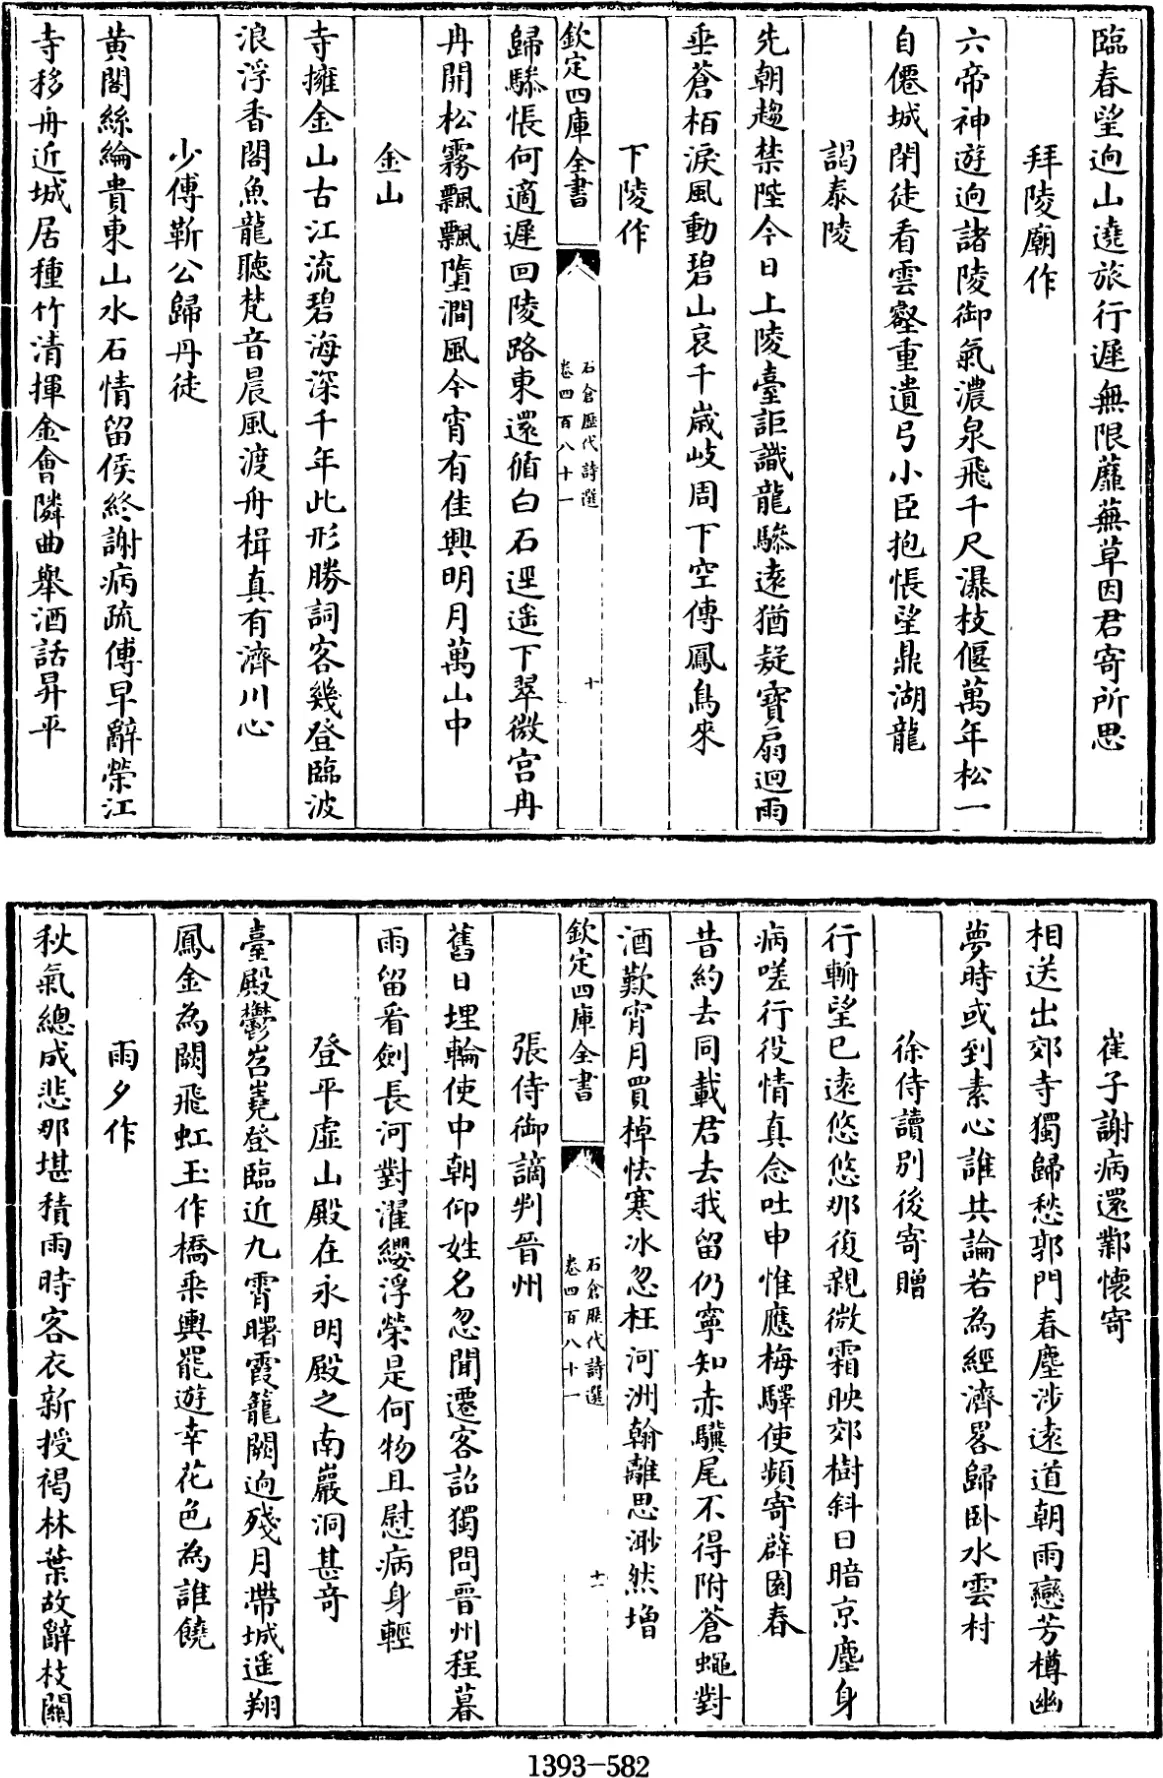 臨春望逈山遶旅行遲無限蘼蕪草因君寄所思
拜陵廟作
六帝神遊逈諸陵御氣濃泉飛千尺瀑枝偃萬年松一
自僊城閉徒看雲壑重遺弓小臣抱悵望鼎湖龍
謁泰陵
先朝趨禁陛今日上陵臺詎識龍驂遠猶疑寶扇迴雨
垂蒼栢淚風動碧山哀千歲岐周下空傳鳳鳥來
下陵作
欽定四庫全書
石倉歷代詩選
卷四百八十一
十
歸驂悵何適遲回陵路東還循白石逕遥下翠微宫冉
冉開松霧飄飄墮澗風今宵有佳興明月萬山中
金山
寺擁金山古江流碧海深千年此形勝詞客幾登臨波
浪浮香閣魚龍聽梵音晨風渡舟楫真有濟川心
少傅靳公歸丹徒
黄閣絲綸貴東山水石情留侯終謝病疏傅早辭榮江
寺移舟近城居種竹清揮金會隣曲舉酒話昇平
崔子謝病還鄴懷寄
相送出郊寺獨歸愁郭門春塵涉逺道朝雨戀芳樽幽
夢時或到素心誰共論若為經濟畧歸卧水雲村
徐侍讀别後寄贈
行輈望已逺悠悠那復親微霜映郊樹斜日暗京塵身
病嗟行役情真念吐申惟應梅驛使頻寄辟園春
昔約去同載君去我留仍寧知赤驥尾不得附蒼蠅對
酒歎宵月買棹怯寒冰忽枉河洲翰離思渺然增
欽定四庫全書
石倉歷代詩選
卷四百八十一
十一
張侍御謫判晉州
舊日埋輪使中朝仰姓名忽聞遷客詔獨問晉州程暮
雨留看劍長河對濯纓浮榮是何物且慰病身輕
登平虛山殿在永明殿之南巖洞甚奇
臺殿鬱岧嶤登臨近九霄曙霞籠闕逈殘月帶城遥翔
鳳金為闕飛虹玉作橋乗輿罷遊幸花色為誰饒
雨夕作
秋氣總成悲那堪積雨時客衣新授褐林葉故辭枝關
1393-582